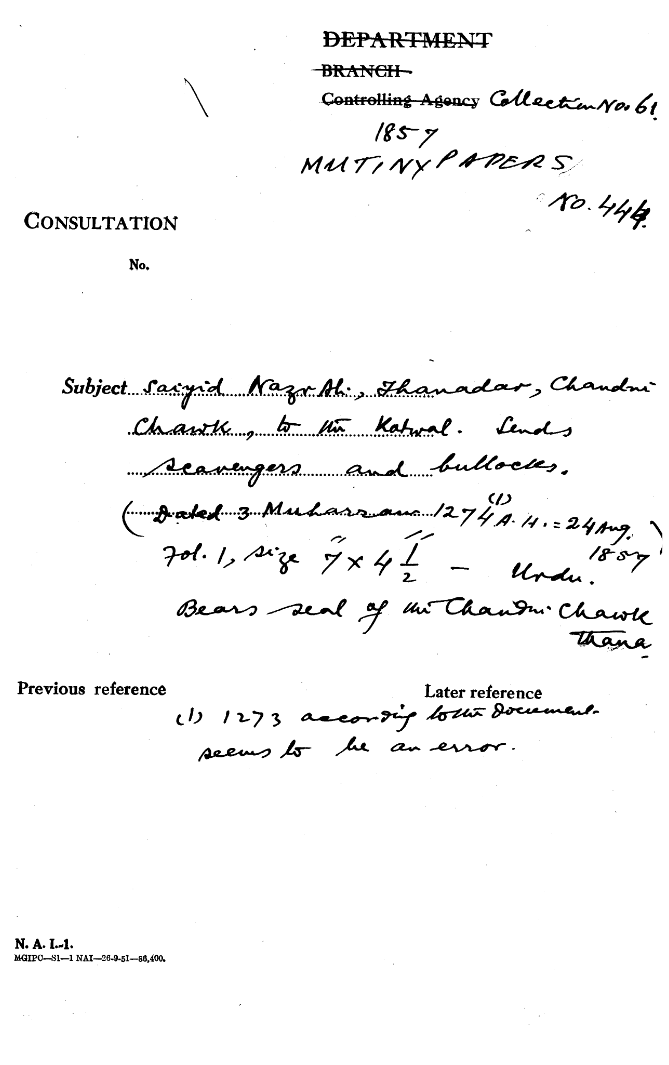 DEPARTMENT
BRANCH
Controlling Agency Collection No. 61.
1857
MUTINY PAPERS
No. 444.
CONSULTATION
No.
Subject Saiyid Nazr Ali, Thanadar, Chandni
Chawk, to the Kotwal. Sends
scavengers and bullocks.
(Dated 3 Muharram 1274 (1) A.H. = 24 Aug. 1857)
Fol. 1, size 7" x 4 1/2" — Urdu.
Bears seal of the Chandni Chawk
Thana
Previous reference Later reference
(1) 1273 according to the Document
seems to be an error.
N. A. I.-1.
MGIPC—S1—1 NAI—26-9-51—86,400.